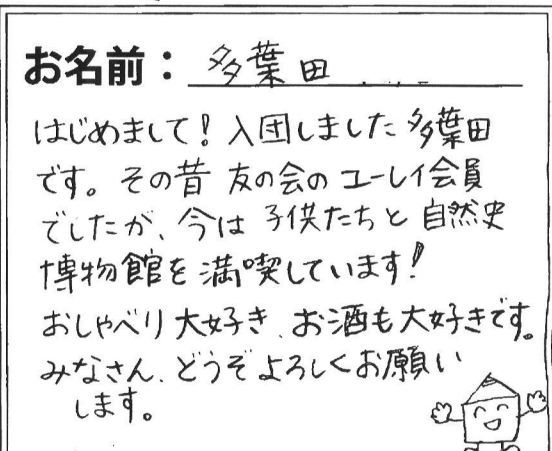 お名前：多葉田
はじめまして！入団しました多葉田
です。その昔 友の会のユーレイ会員
でしたが、今は子供たちと自然史
博物館を満喫しています！
おしゃべり大好き、お酒も大好きです。
みなさん、どうぞよろしくお願い
します。